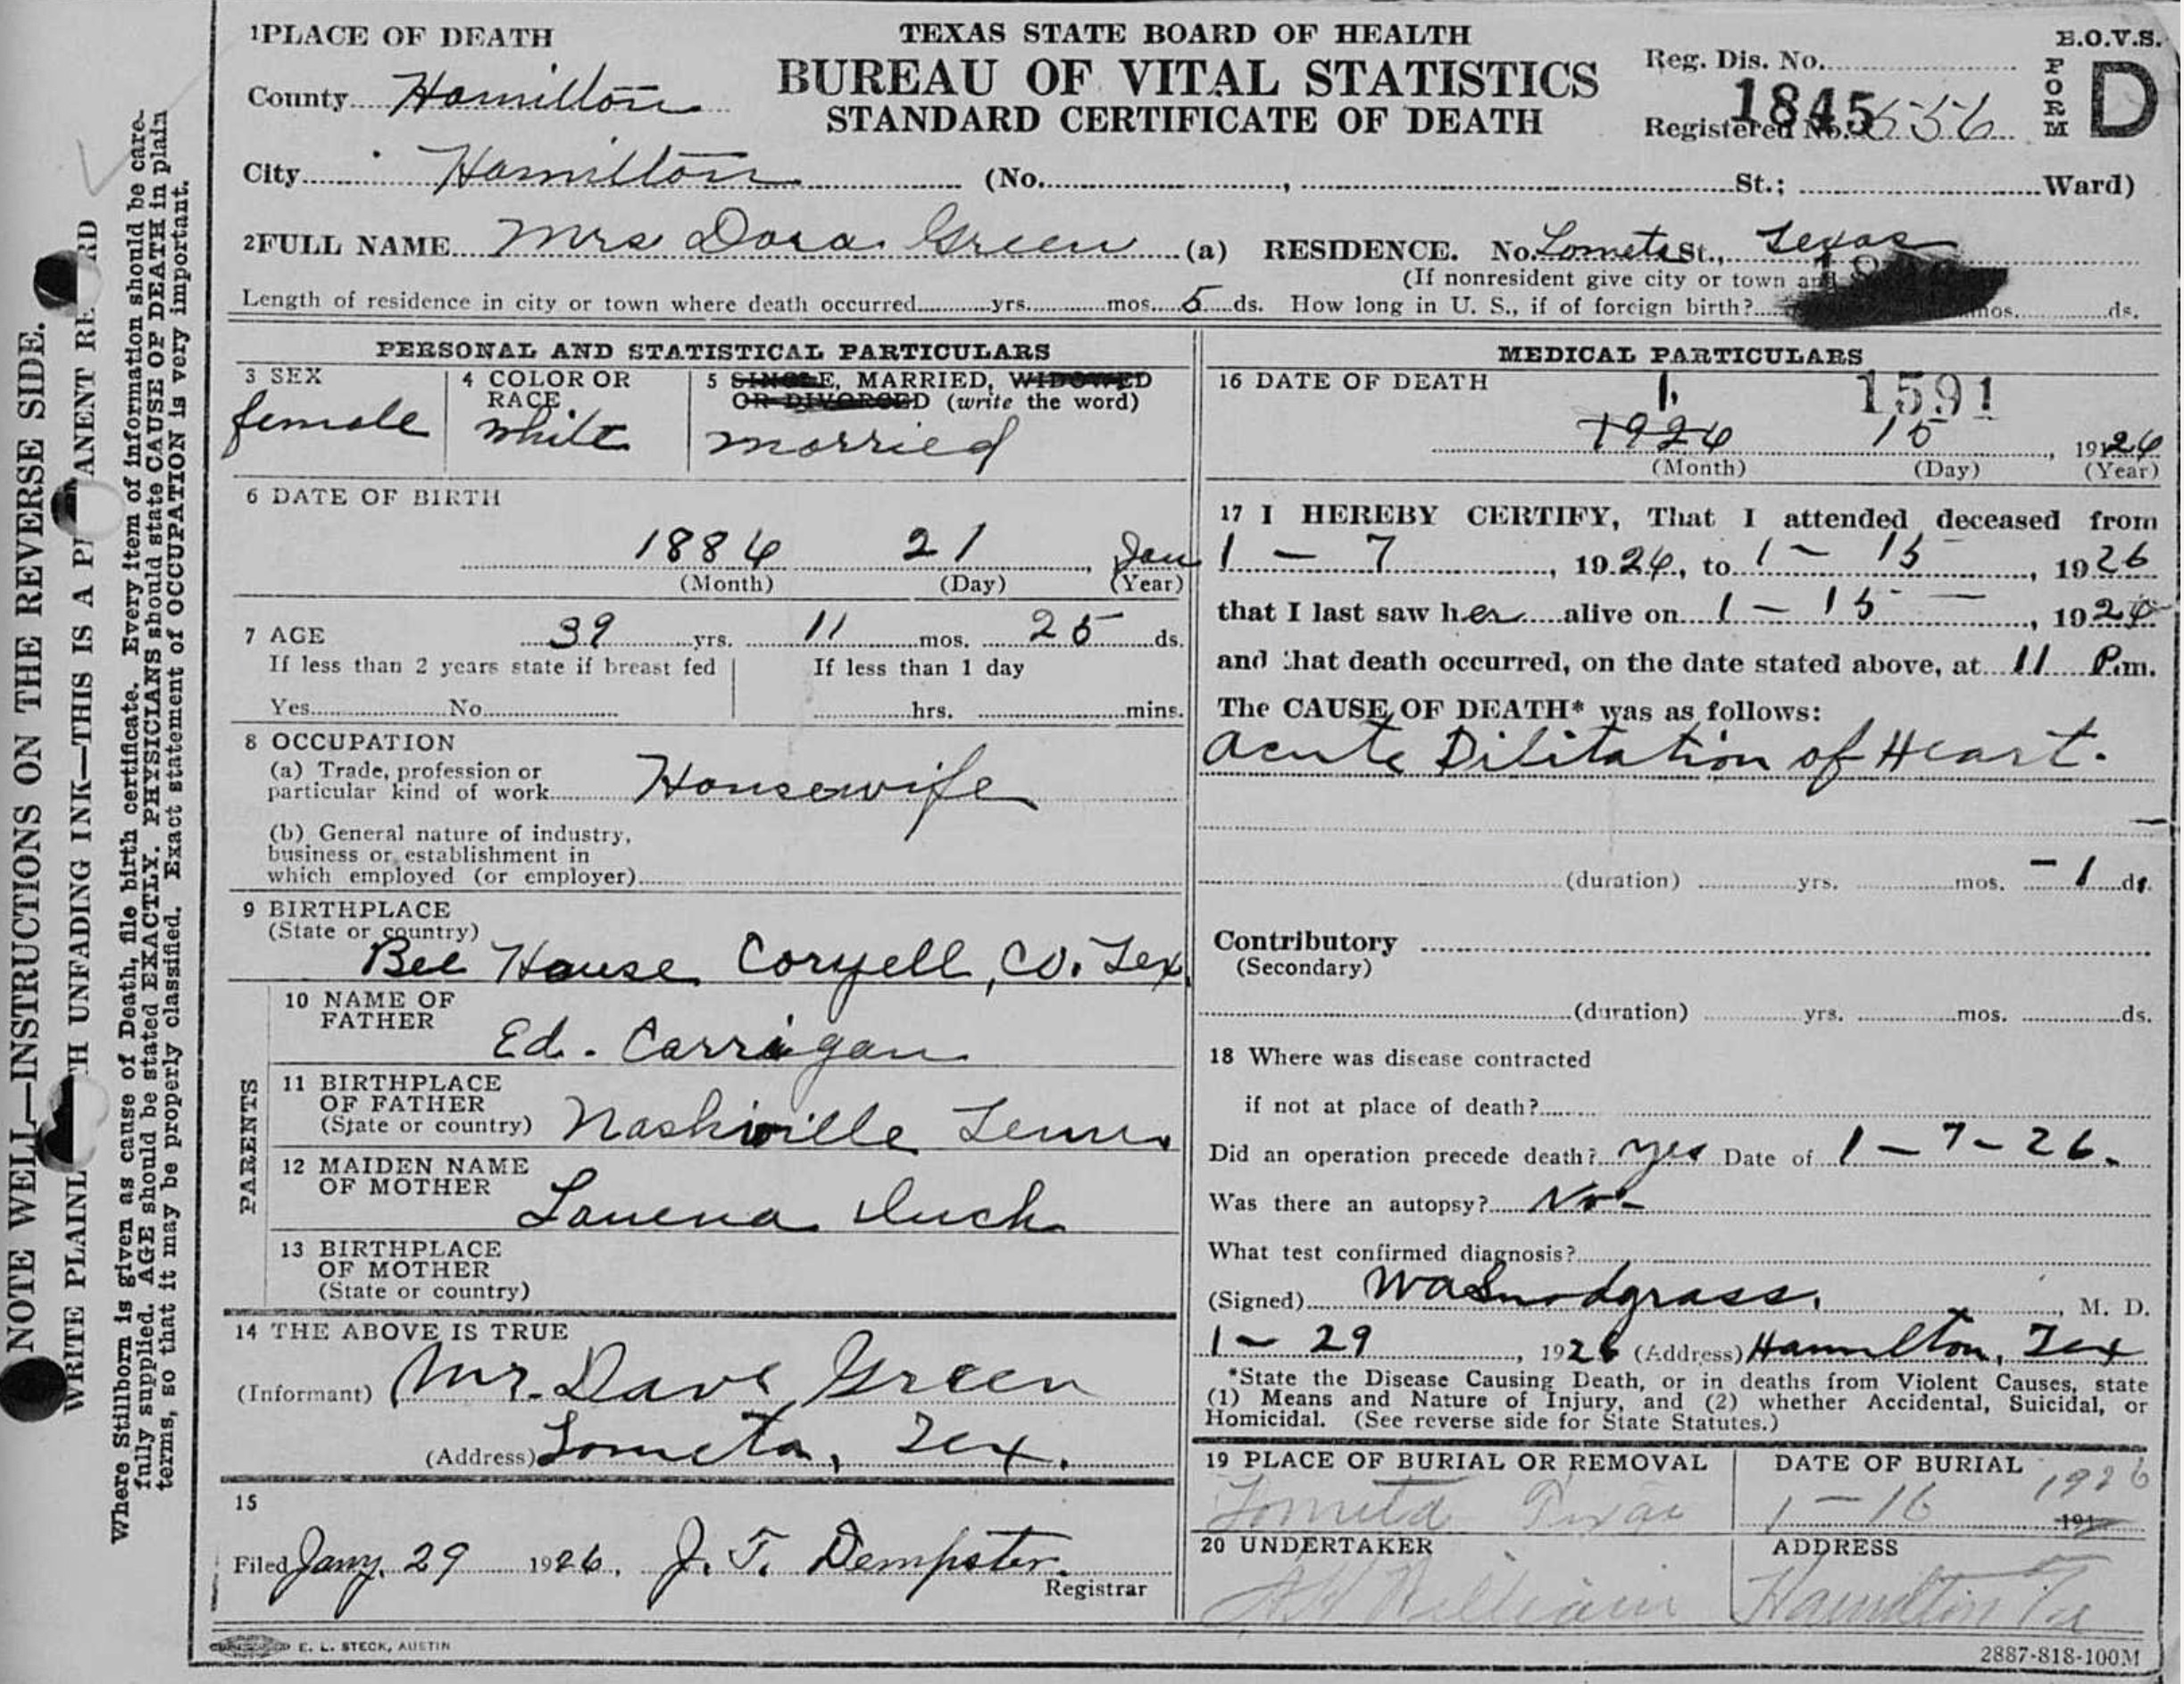 1 PLACE OF DEATH
TEXAS STATE BOARD OF HEALTH
BUREAU OF VITAL STATISTICS
STANDARD CERTIFICATE OF DEATH
B.O.V.S.
FORM D
Reg. Dis. No.
Registered No. 1845 556
County Hamilton
City Hamilton (No. , St.; Ward)
2 FULL NAME Mrs Dora Green (a) RESIDENCE. No. Lometa St., Texas
(If nonresident give city or town and
Length of residence in city or town where death occurred yrs. mos. 5 ds. How long in U. S., if of foreign birth? mos. ds.
PERSONAL AND STATISTICAL PARTICULARS
3 SEX
female
4 COLOR OR RACE
white
5 SINGLE, MARRIED, WIDOWED
OR DIVORCED (write the word)
married
6 DATE OF BIRTH
1886 21 , Jan
(Month) (Day) (Year)
7 AGE 39 yrs. 11 mos. 25 ds.
If less than 2 years state if breast fed
Yes No
If less than 1 day
hrs. mins.
8 OCCUPATION
(a) Trade, profession or
particular kind of work Housewife
(b) General nature of industry,
business or establishment in
which employed (or employer)
9 BIRTHPLACE
(State or country)
Bee House Coryell, Co. Tex.
PARENTS
10 NAME OF
FATHER
Ed. Carrigan
11 BIRTHPLACE
OF FATHER
(State or country) Nashville Tenn.
12 MAIDEN NAME
OF MOTHER
13 BIRTHPLACE
OF MOTHER
(State or country)
14 THE ABOVE IS TRUE
(Informant) Mr. Dave Green
(Address) Lometa, Tex.
15
Filed Jany. 29 1926, J. T. Dempster.
Registrar
E. L. STECK, AUSTIN
MEDICAL PARTICULARS
16 DATE OF DEATH 1. 1591
1926 15 , 1926
(Month) (Day) (Year)
17 I HEREBY CERTIFY, That I attended deceased from
1 - 7 , 1926, to 1 - 15 , 1926
that I last saw her alive on 1 - 15 - , 1926
and that death occurred, on the date stated above, at 11 P.m.
The CAUSE OF DEATH* was as follows:
Acute Dilitation of Heart.
(duration) yrs. mos. - 1 ds.
Contributory
(Secondary)
(duration) yrs. mos. ds.
18 Where was disease contracted
if not at place of death?
Did an operation precede death? yes Date of 1 - 7 - 26.
Was there an autopsy? No -
What test confirmed diagnosis?
(Signed) W A Snodgrass. , M. D.
1 - 29 , 1926 (Address) Hamilton, Tex
*State the Disease Causing Death, or in deaths from Violent Causes, state
(1) Means and Nature of Injury, and (2) whether Accidental, Suicidal, or
Homicidal. (See reverse side for State Statutes.)
19 PLACE OF BURIAL OR REMOVAL
Lometa Texas
DATE OF BURIAL
1 - 16 1926 191
20 UNDERTAKER
ADDRESS
Hamilton Tex
2887-818-100M
NOTE WELL—INSTRUCTIONS ON THE REVERSE SIDE.
WRITE PLAINL TH UNFADING INK—THIS IS A P ANENT RE RD
Where Stilborn is given as cause of Death, file birth certificate. Every item of information should be care-
fully supplied. AGE should be stated EXACTLY. PHYSICIANS should state CAUSE OF DEATH in plain
terms, so that it may be properly classified. Exact statement of OCCUPATION is very important.